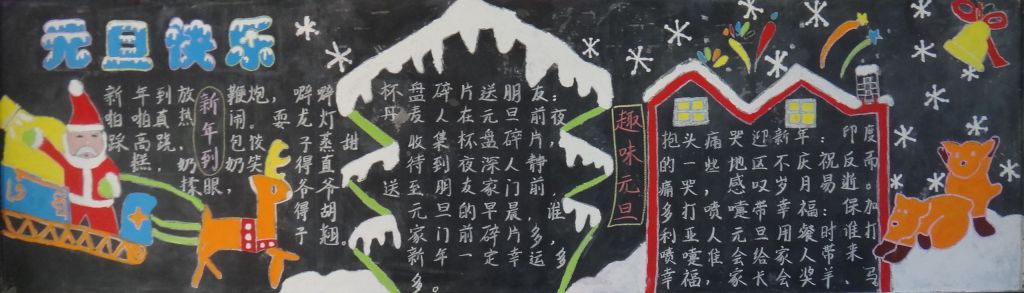 元旦快乐
新年到
新年到放鞭炮,噼噼
啪啪真热闹。耍龙灯
踩高跷,包饺子蒸甜
糕,奶奶笑得直
揉眼,爷爷得胡
子翘。
杯盘碎片送朋友:
丹麦人在元旦前夜,
收集杯盘碎片,
待到夜深人静,
送至朋友家门前,谁
元旦的早晨
家门前碎片多,谁
新年一定幸运
多。
趣味元旦
抱头痛哭迎新年:印度
的一些地区不庆祝反而
痛哭,感叹岁月易逝。
多打喷嚏带幸福:保加
利亚人元旦用餐时谁打
喷嚏准会给家人带来
幸福,家长会奖羊、马